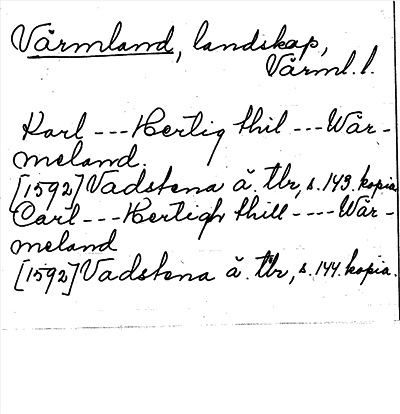 Värmland, landskap,
Värml. l.
Karl --- Hertig thil --- Wär-
meland.
[1592] Vadstena ä. tbr, s. 143. kopia
Carl --- Hertigh thill ---- Wär-
meland
[1592] Vadstena ä. tbr, s. 144. kopia.